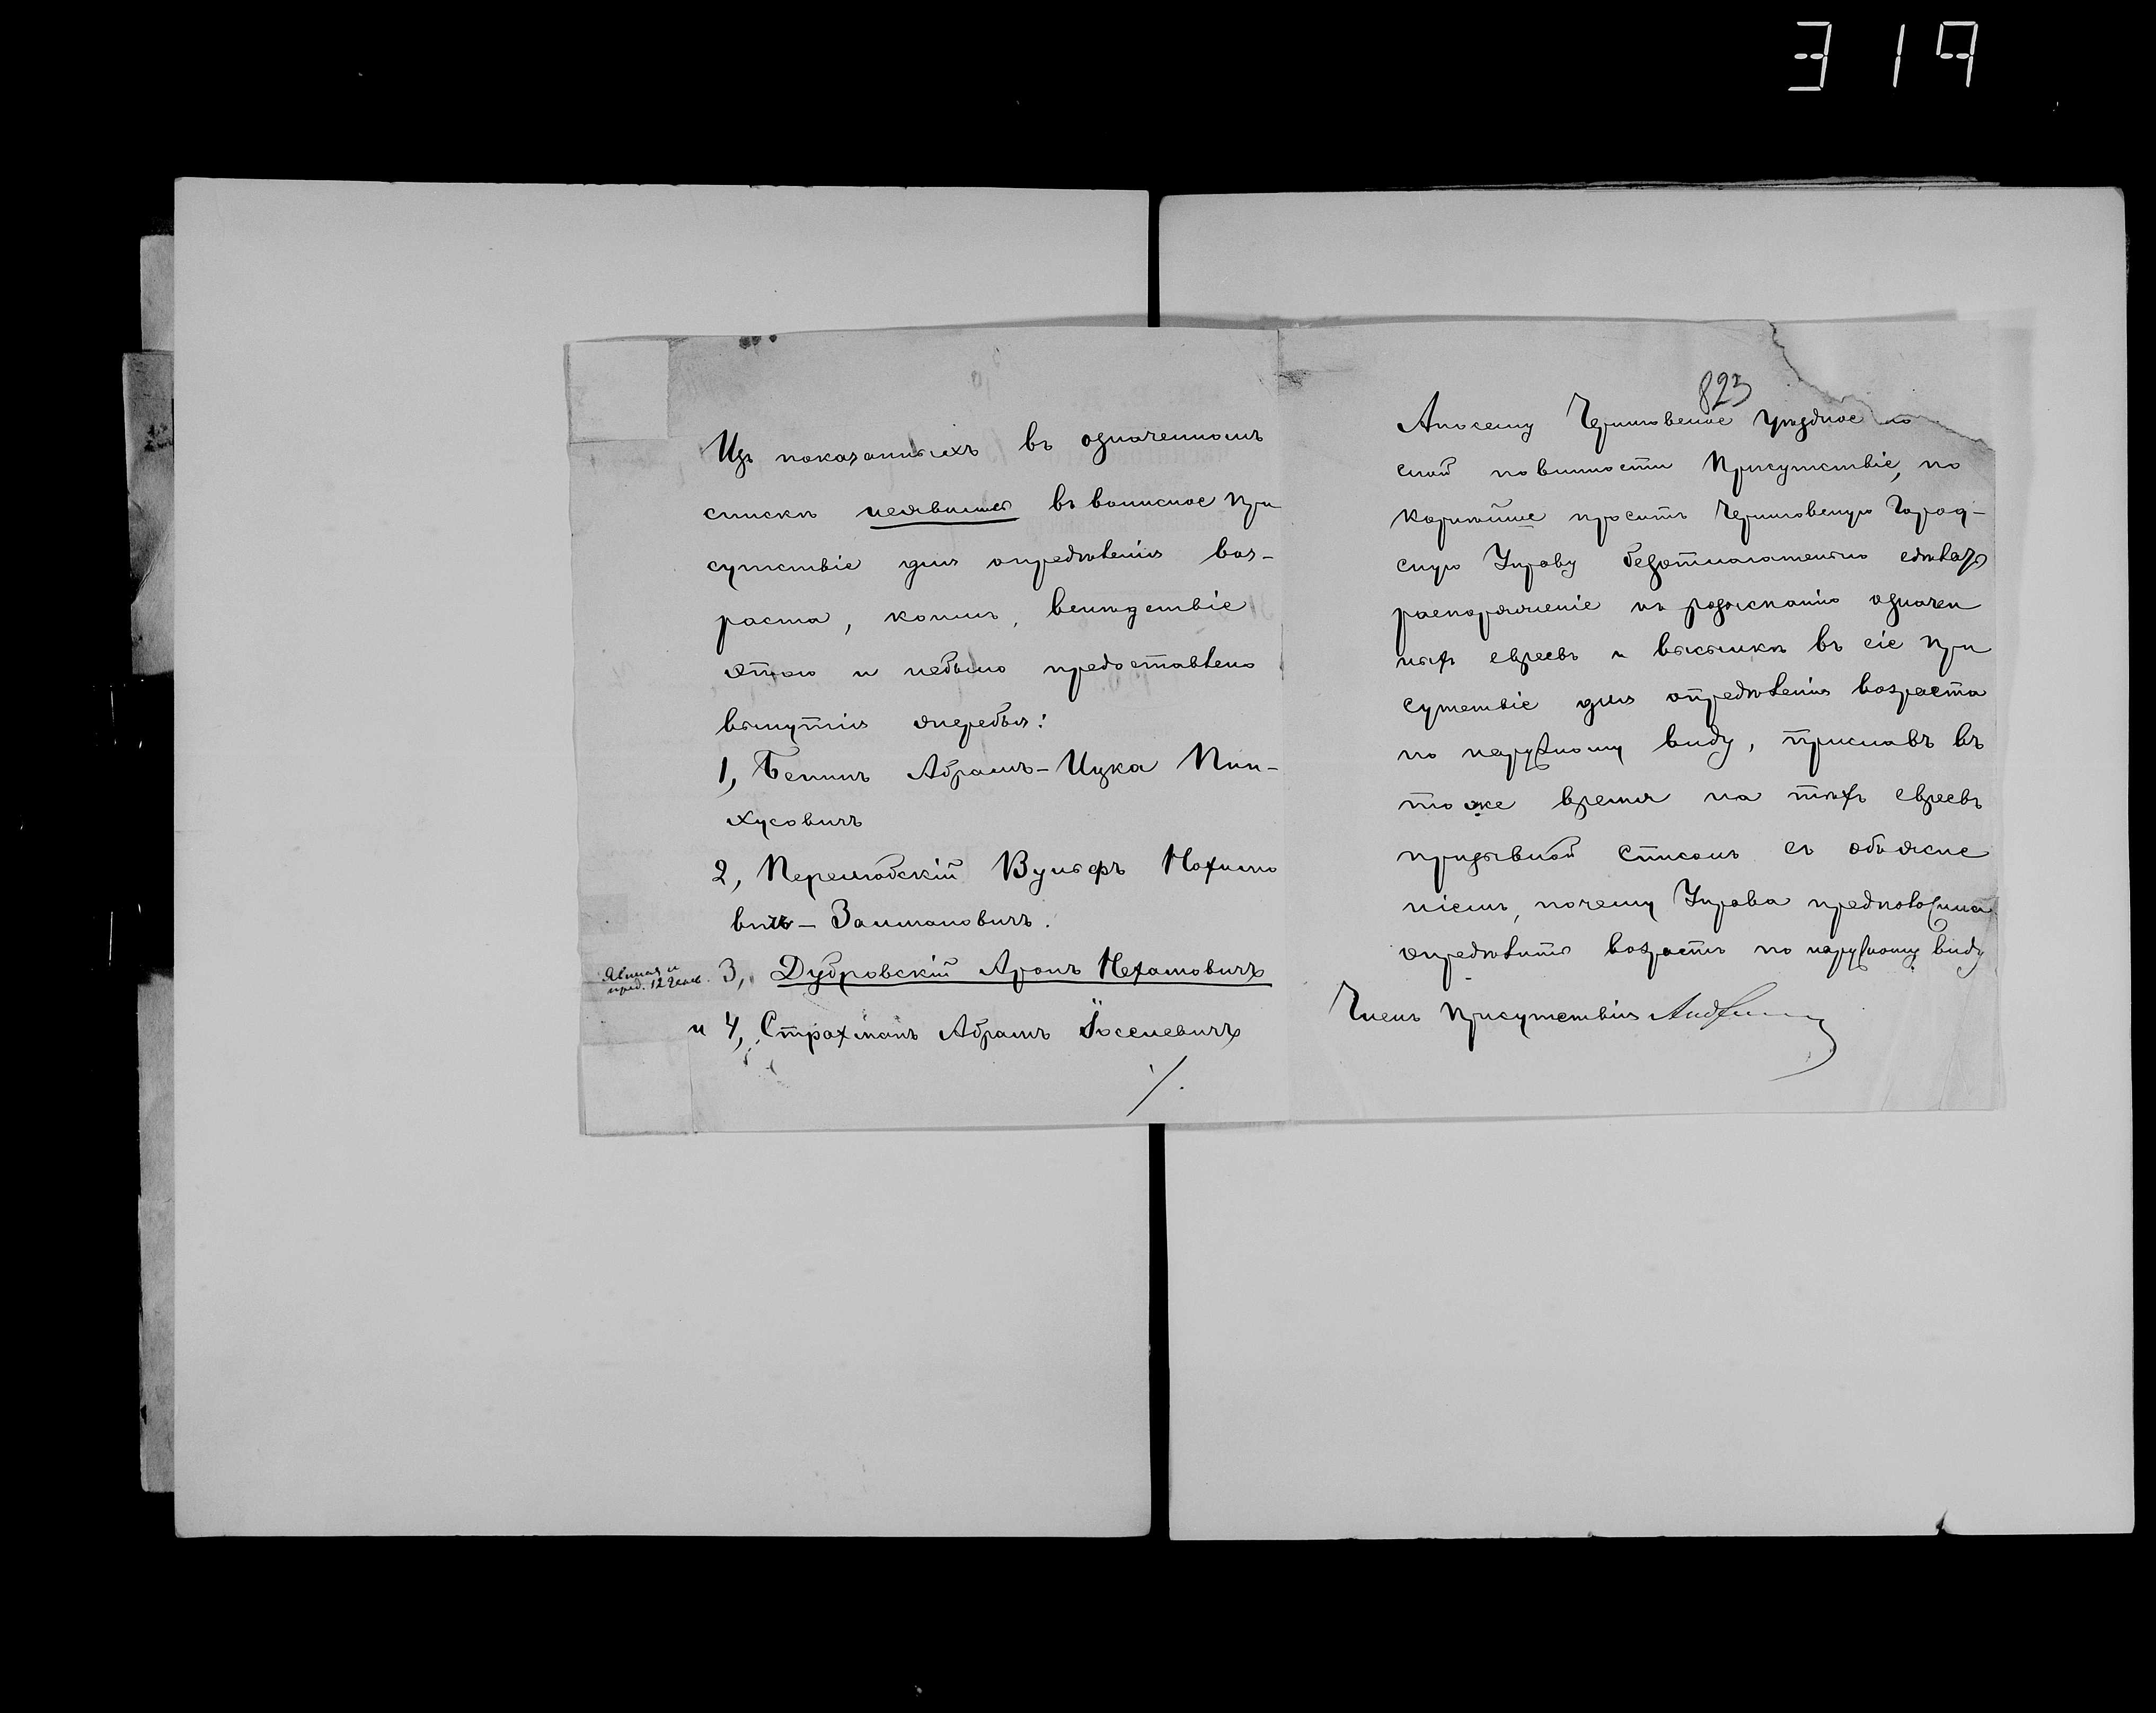 319
Изъ показанныхъ въ означенномъ
списке неявились въ воинское При
сутствіе для определенія воз-
раста, коимъ, вследствіе
этого и небыло предоставлено
вынутія жеребья:
1, Бенинъ Абрамъ-Ицка Пин-
хусовичъ
2, Перемобскій Вульфъ Нохимо
вичъ-Залмановичъ.
Явился и
пред. 12 Генв.
3, Дубровскій Аронъ Нехамовичъ
и 4, Страхманъ Абрамъ Іоселевичъ
/.
823
Апосему Черниговское Уездное по
ской повинности Присутствіе, по
корнейше проситъ Черниговскую Город-
скую Управу безотлагательно сделать
распоряженіе къ розысканію означен
ныхъ евреевъ и высылке въ сіе При
сутствіе для определенія возраста
по наружному виду, приславъ въ
тоже время на техъ евреевъ
призывной списокъ съ объясне
ніемъ, почему Управа предположила
определить возрастъ по наружному виду
Членъ Присутствія